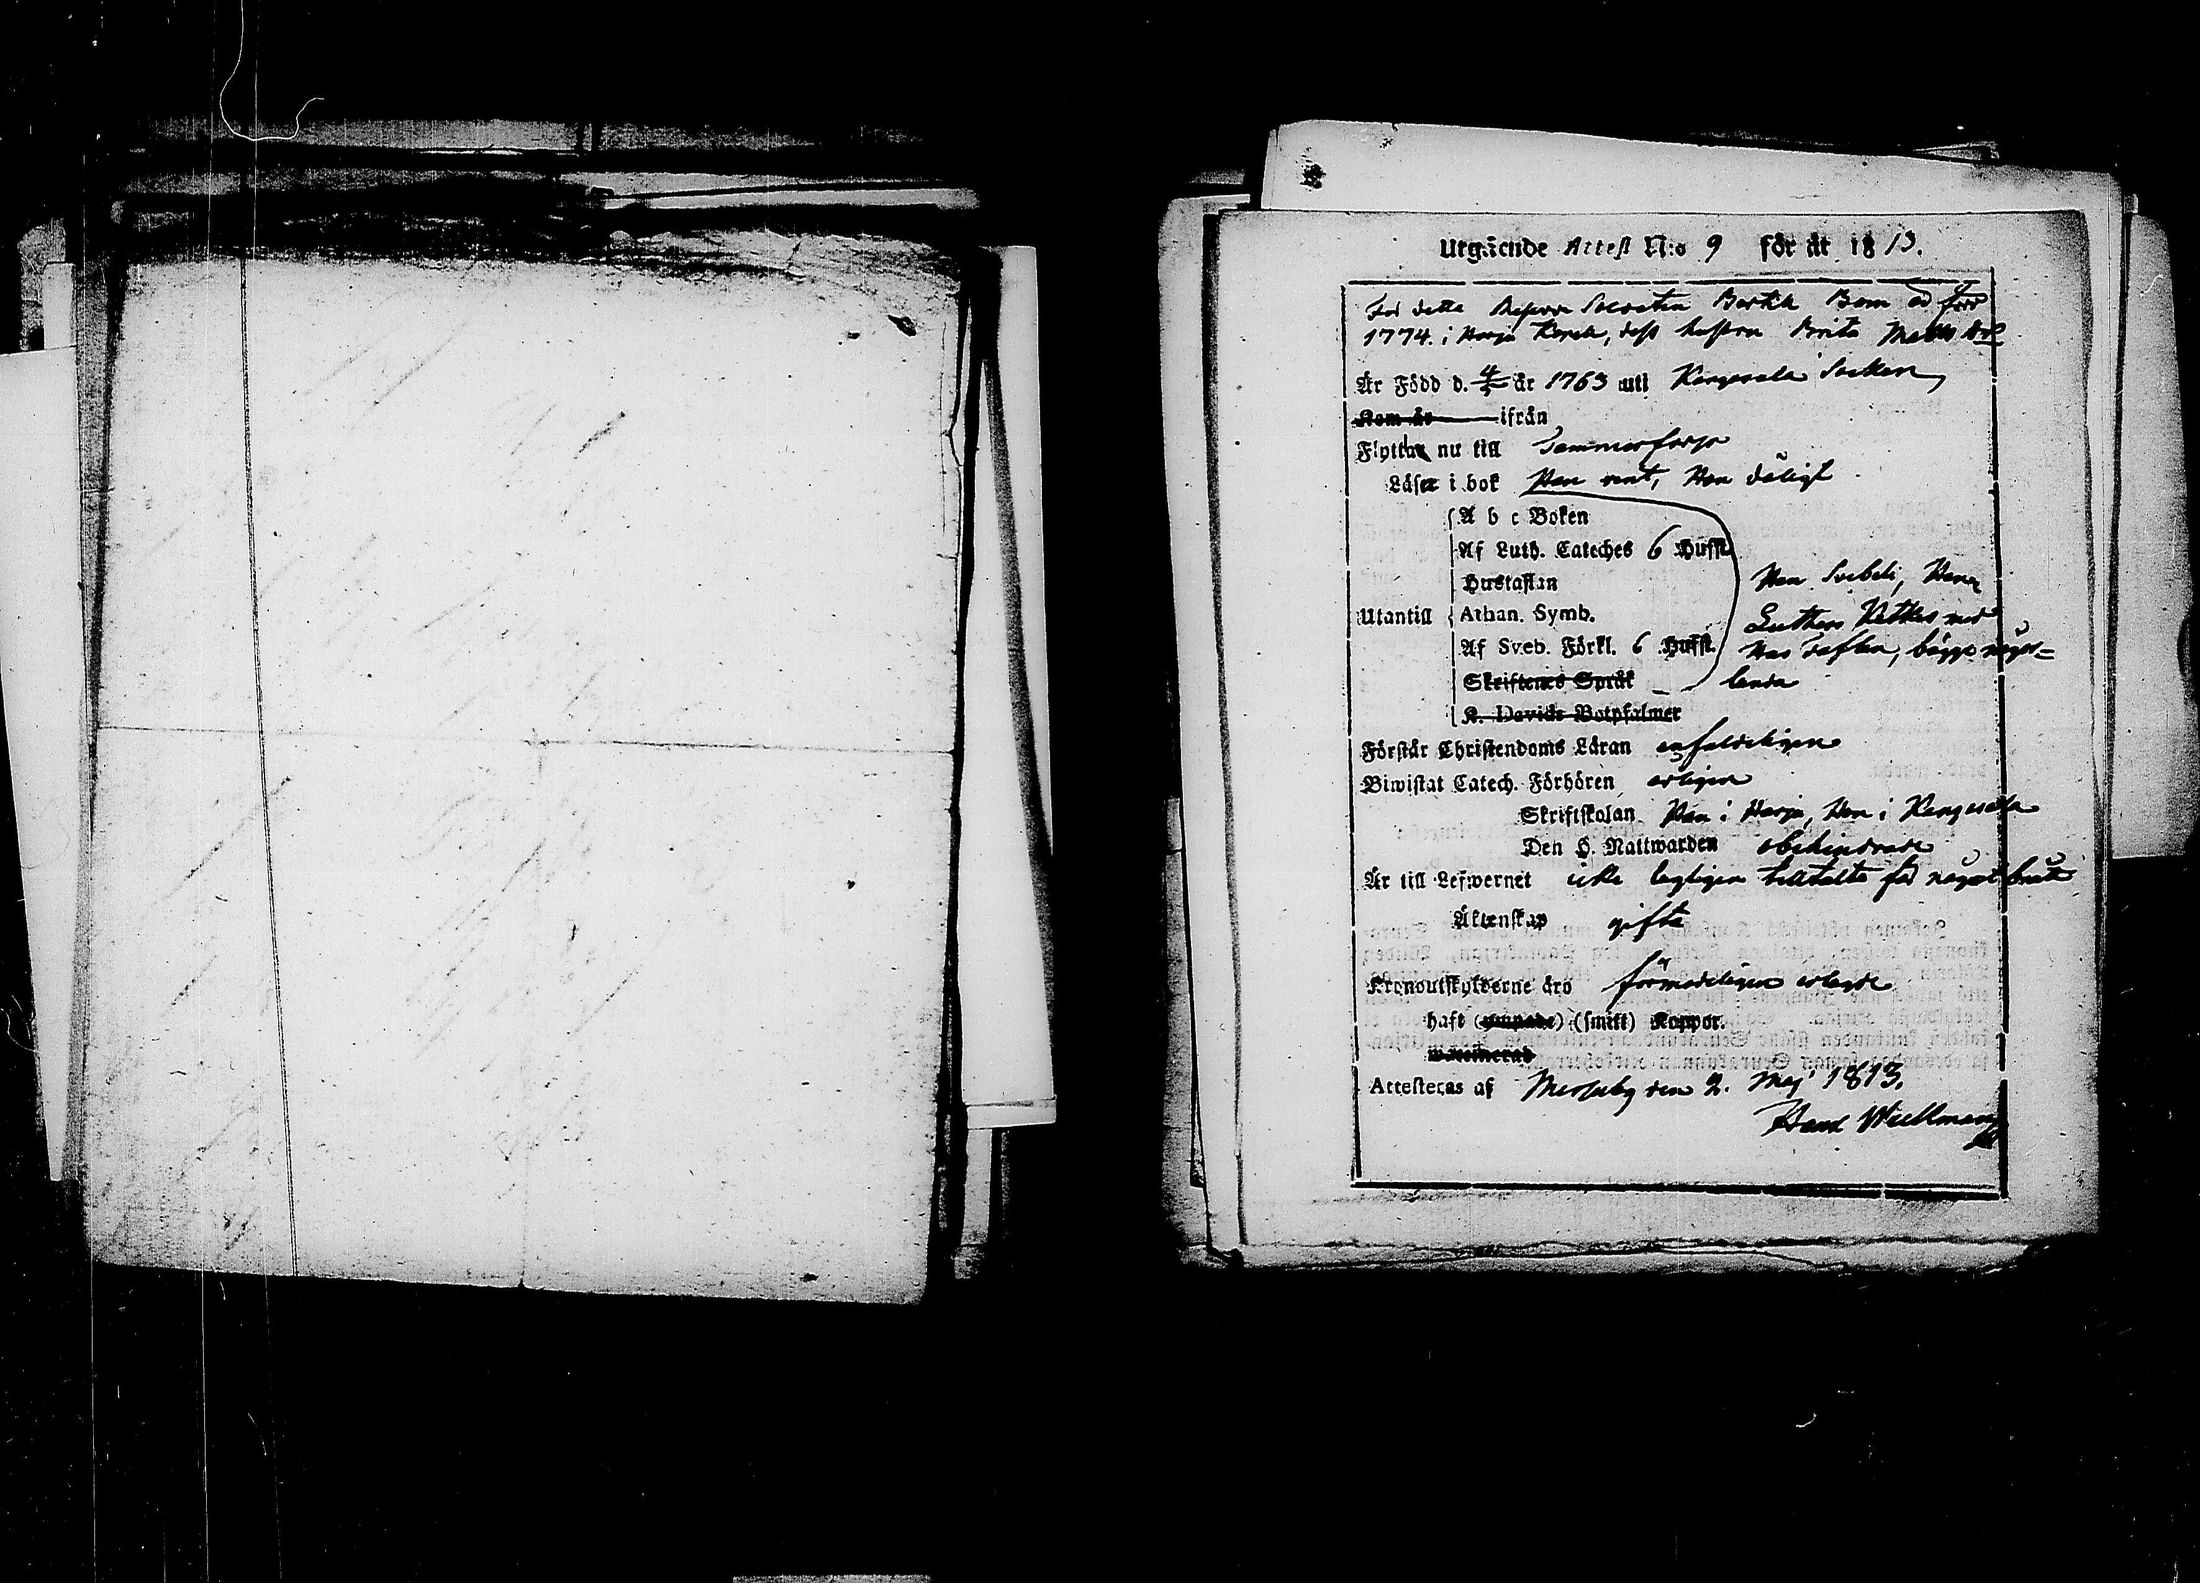 Utgående Attest N:o 9 för år 1813.
För detta Soldaten Bertil Bom är född
1774. i Harju Kyrka, dess hustru Brita Matts dr
Är Född d. 4/5 år 1763 uti Kangasala Socken,
Kom år ifrån
Flyttar nu till Tammerfors
Läser i bok Han rent, Hon dåligt
A b c Boken
Af Luth. Cateches 6 Hufst.
Hustaflan
Utantill Athan. Symb.
Af Sveb. Förkl. 6 Hufst.
Skriftenes Språk
K. Davids Botpsalmer
Han Svebeli, Hon
Luthers Kethes med
Hus Taflan, bägge någor=
lunda
Förstår Christendoms Läran enfaldeligen
Biwistat Catech. Förhören årligen
Skriftskolan Han i Harju, Hon i Kangasala
Den H. Nattwarden obehindrade
Är till Lefwernet icke lagligen tilltalte för något brått
Äktenskap gifta
Kronoutskylderne äro förmodeligen erlagde
haft (ympade) (smitt) Koppor.
waccinerad
Attesteras af Messuby den 2. Maj 1813.